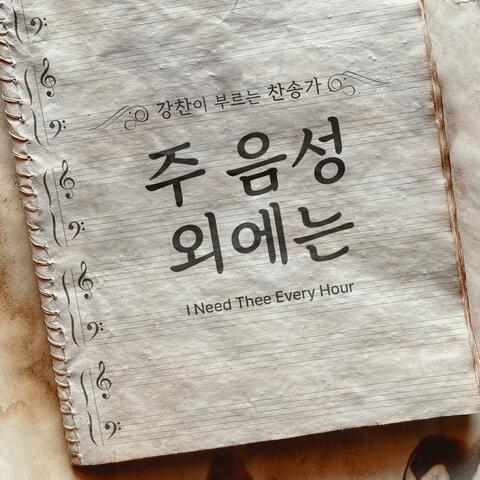 강찬이 부르는 찬송가
주 음성
외에는
I Need Thee Every Hour